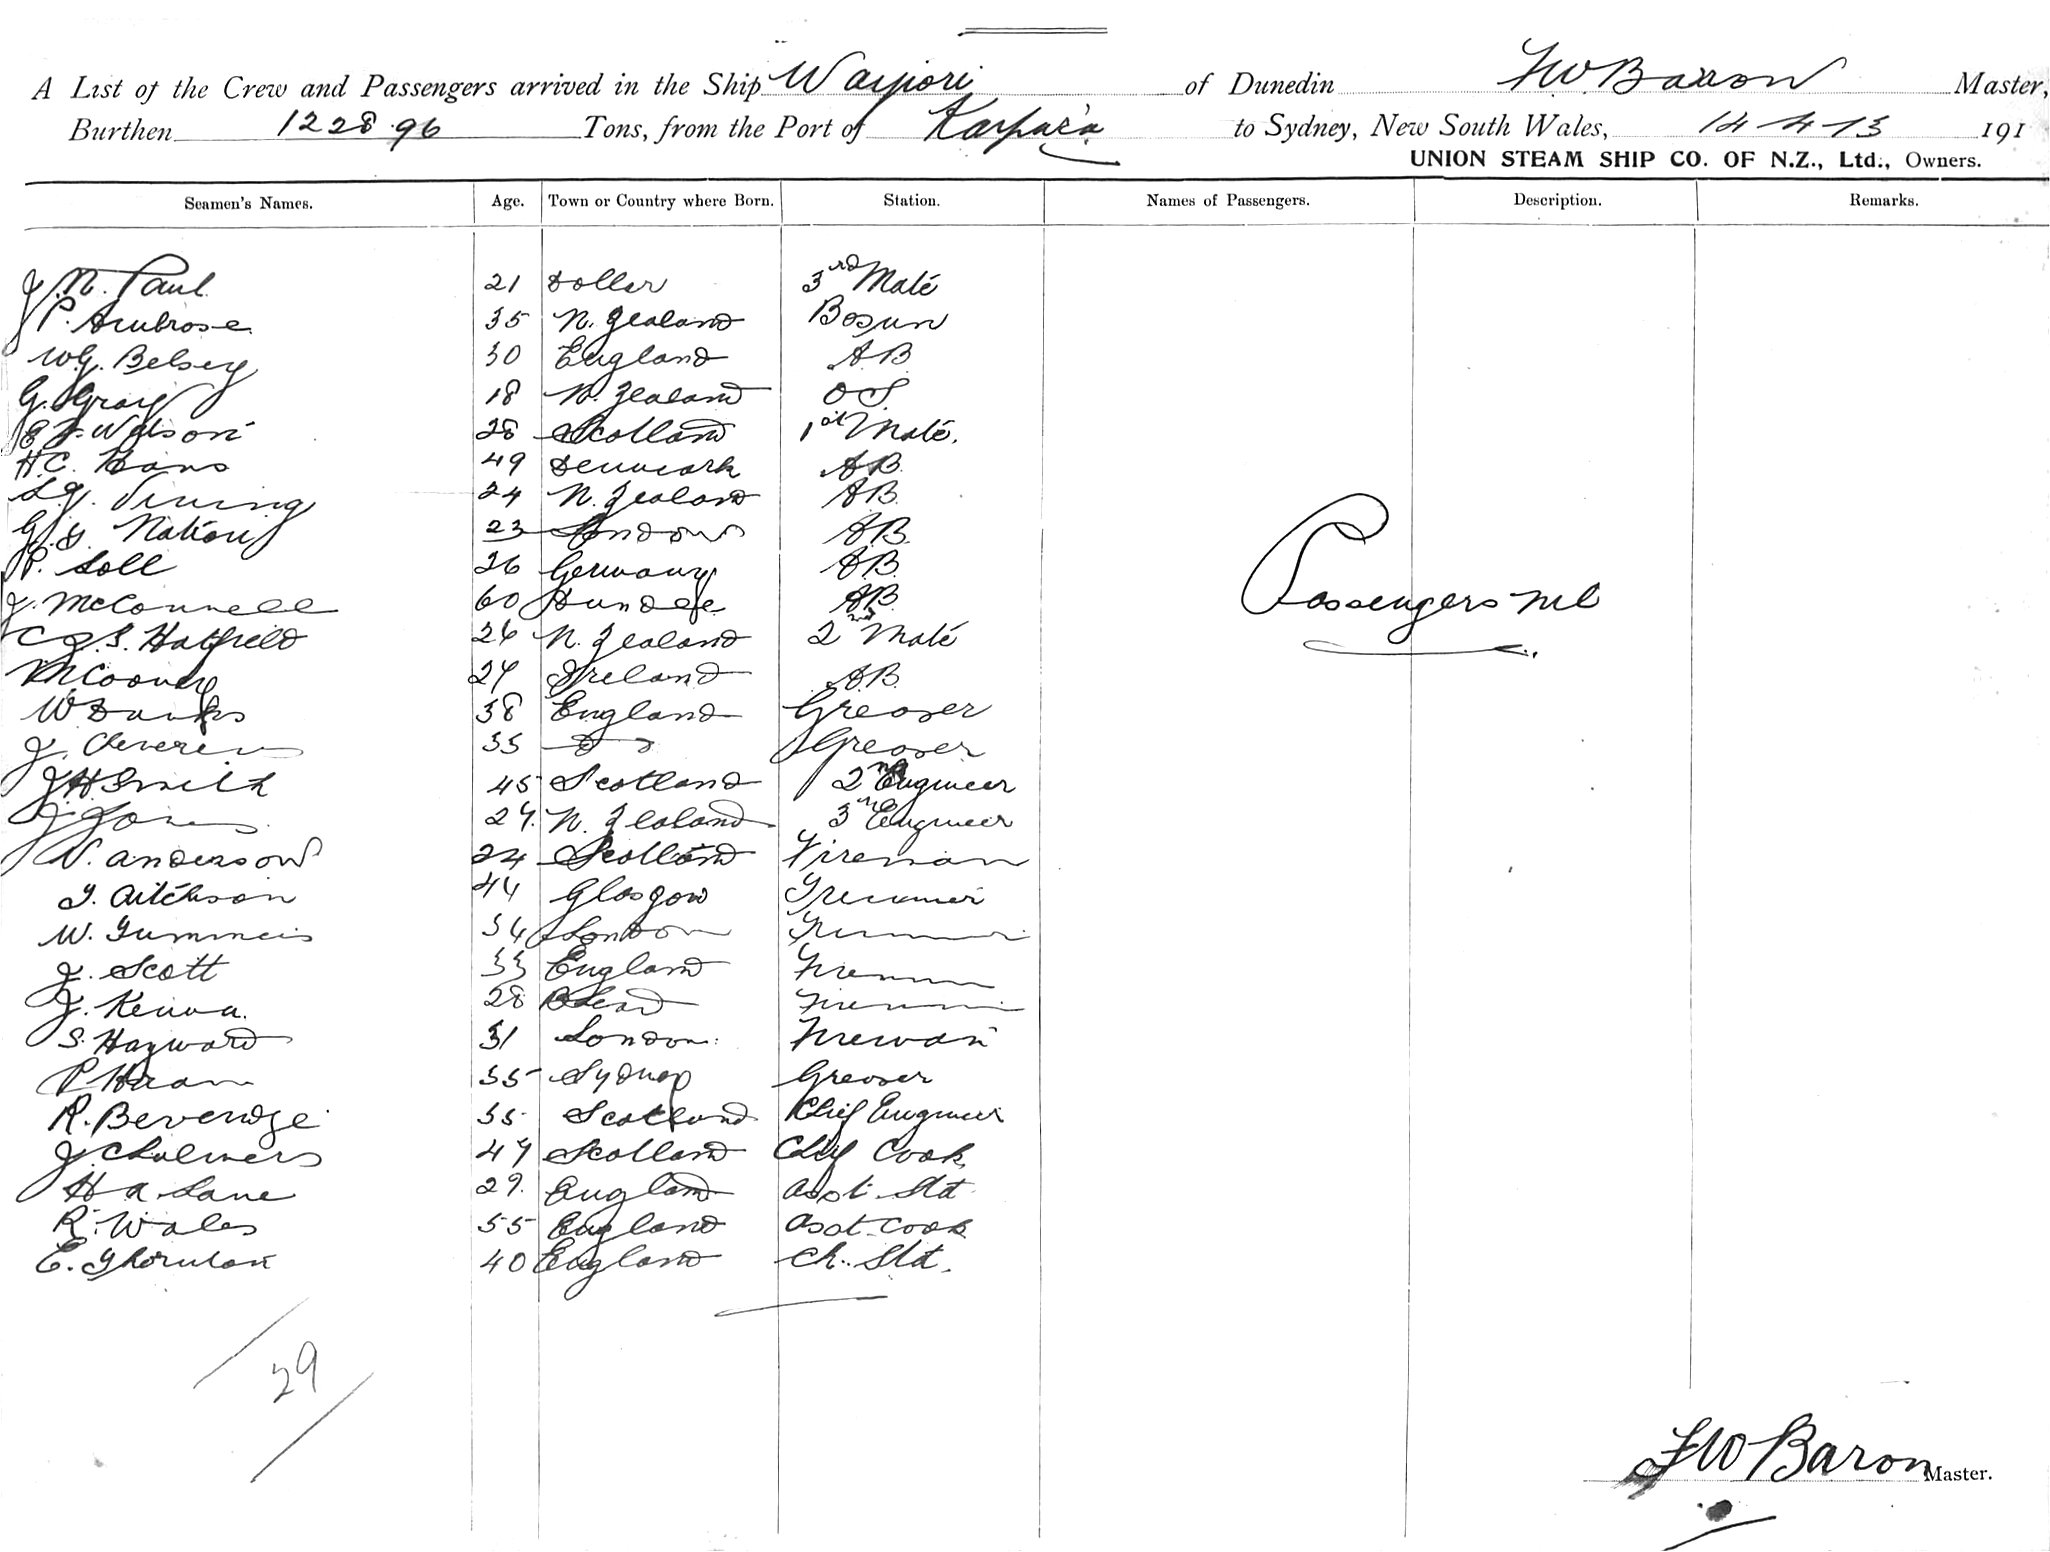 A List of the Crew and Passengers arrived in the Ship Waipori of Dunedin F W Baron Master,
Burthen 1228.96 Tons, from the Port of Kaipara to Sydney, New South Wales, 14-4-13 191
UNION STEAM SHIP CO. OF N.Z., Ltd., Owners.
Seamen's Names. Age. Town or Country where Born. Station. Names of Passengers. Description. Remarks.
J. N. Paul 21 Dollar 3rd Mate
P. Ambrose 35 N. Zealand Bosun
W G. Belsey 30 England A B
G. Gray 18 N. Zealand O S.
E J. Watson 28 Scotland 1st Mate.
H. C. Hans 49 Denmark A B.
24 N. Zealand A B.
G. Nation 23 London A B.
P. Soll 26 Germany A B.
J. McConnell 60 Dundee A B.
C J. S. Hatfield 26 N. Zealand 2nd Mate
Passengers nil
M Cooney 24 Ireland A B.
W Danks 38 England Greaser
J. 35 Do Greaser
J H Smith 45 Scotland 2nd Engineer
J. Jones 24. N. Zealand 3rd Engineer
N. Anderson 24 Scotland Fireman
J. Aitchson 44 Glasgow Trimmer
W. 34 London Trimmer
J. Scott 33 England Fireman
J. 28 Fireman
S. Hayward 31 London Fireman
P 35 Sydney Greaser
R. Beveridge 35 Scotland Chief Engineer
J. Chalmers 47 Scotland Chief Cook
H A Lane 29. England Asst. Std
R. Wales 55 England Asst Cook
E. Thornton 40 England Ch. Std.
29
F W Baron Master.